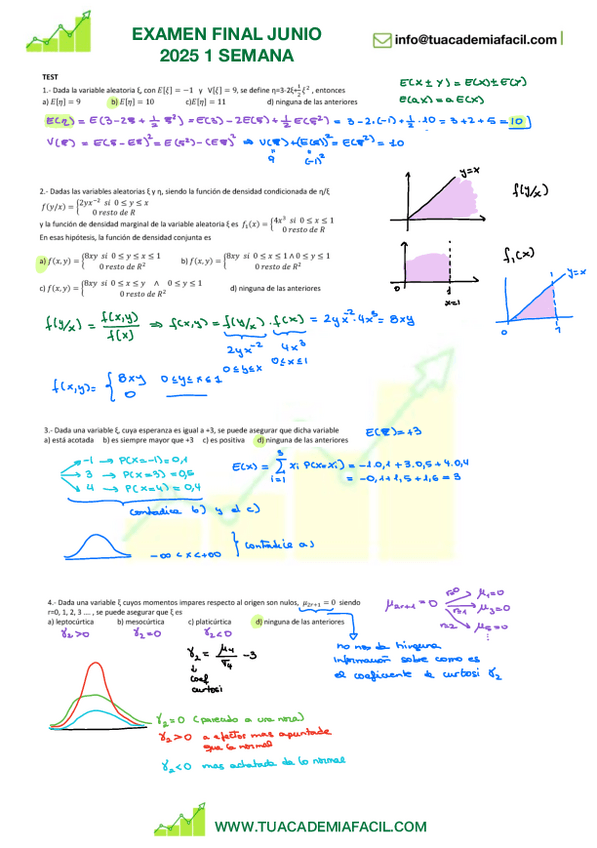 EXAMEN FINAL JUNIO
2025 1 SEMANA
info@tuacademiafacil.com
TEST
1.- Dada la variable aleatoria ξ, con E[ξ] = −1 y V[ξ] = 9, se define η=3-2ξ+1/2 ξ², entonces
a) E[η] = 9 b) E[η] = 10 c)E[η] = 11 d) ninguna de las anteriores
E(x ± y) = E(x) ± E(y)
E(ax) = a E(x)
E(η) = E(3-2ξ + 1/2 ξ²) = E(3) - 2E(ξ) + 1/2 E(ξ²) = 3-2·(-1)+1/2·10 = 3+2+5 = 10
V(ξ) = E(ξ-Eξ)² = E(ξ²)-(Eξ)² ⇒ V(ξ)+(E(ξ))² = E(ξ²) = 10
9 (-1)²
2.- Dadas las variables aleatorias ξ y η, siendo la función de densidad condicionada de η/ξ
f(y/x) = {2yx⁻² si 0 ≤ y ≤ x
0 resto de R
y la función de densidad marginal de la variable aleatoria ξ es f₁(x) = {4x³ si 0 ≤ x ≤ 1
0 resto de R
En esas hipótesis, la función de densidad conjunta es
a) f(x, y) = {8xy si 0 ≤ y ≤ x ≤ 1
0 resto de R²
b) f(x, y) = {8xy si 0 ≤ x ≤ 1 ∧ 0 ≤ y ≤ 1
0 resto de R²
c) f(x, y) = {8xy si 0 ≤ x ≤ y ∧ 0 ≤ y ≤ 1
0 resto de R²
d) ninguna de las anteriores
y=x
f(y/x)
f₁(x)
0 1
x=1
y=x
0 1
f(y/x) = f(x,y)/f(x) ⇒ f(x,y) = f(y/x) · f(x) = 2yx⁻²·4x³ = 8xy
2yx⁻² 4x³
0≤y≤x 0≤x≤1
f(x,y) = { 8xy 0≤y≤x≤1
0
3.- Dada una variable ξ, cuya esperanza es igual a +3, se puede asegurar que dicha variable
a) está acotada b) es siempre mayor que +3 c) es positiva d) ninguna de las anteriores
E(ξ) = +3
-1 → P(x=-1)=0,1
3 → P(x=3)=0,5
4 → P(x=4)=0,4
E(x) = 3 ∑ i=1 xi P(x=xi) = -1·0,1 + 3·0,5 + 4·0,4
= -0,1+1,5+1,6 = 3
contradice b) y el c)
-∞ < x < +∞ } contradice a)
4.- Dada una variable ξ cuyos momentos impares respecto al origen son nulos, μ₂ᵣ₊₁ = 0 siendo
r=0, 1, 2, 3 .... , se puede asegurar que ξ es
a) leptocúrtica b) mesocúrtica c) platicúrtica d) ninguna de las anteriores
γ₂>0 γ₂=0 γ₂<0
μ₂ᵣ₊₁ = 0
r=0 μ₁=0
r=1 μ₃=0
r=2 μ₅=0
γ₂ = μ₄/σ⁴ - 3
coef
curtosi
no nos da ninguna
información sobre como es
el coeficiente de curtosi γ₂
γ₂=0 (parecido a una normal)
γ₂>0 más apuntada
que la normal
γ₂<0 mas achatada de lo normal
WWW.TUACADEMIAFACIL.COM